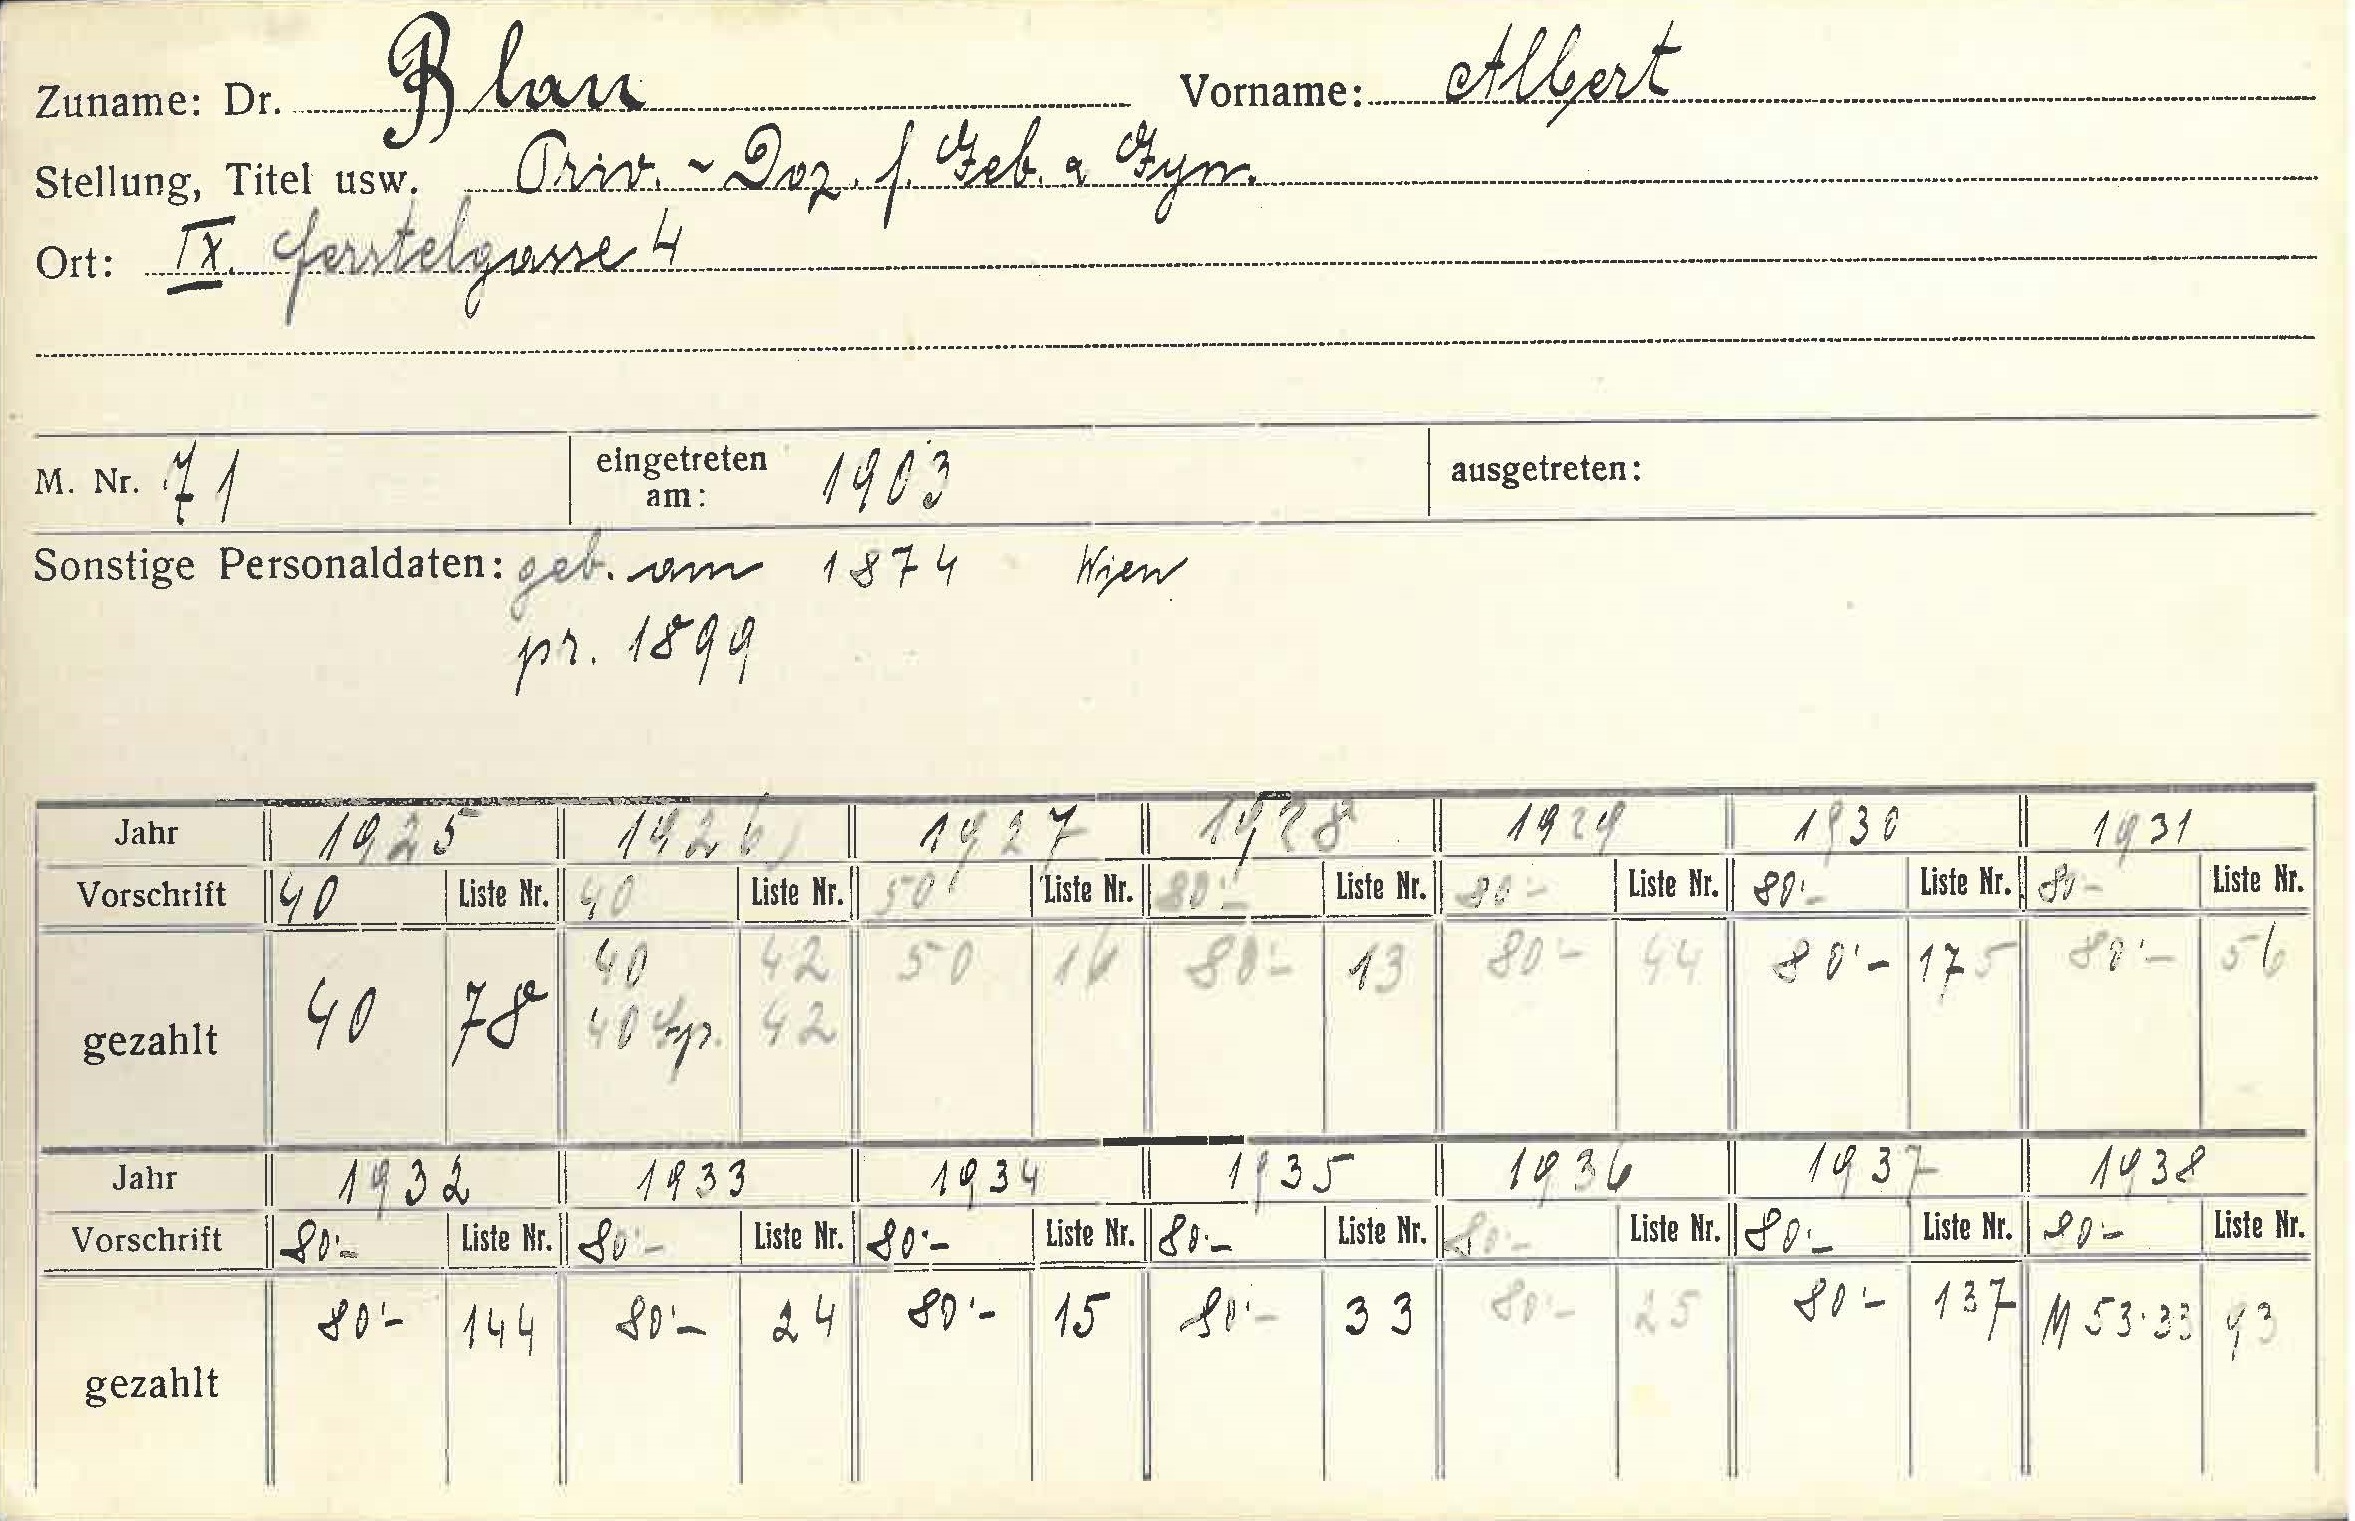 Zuname: Dr. Blau Vorname: Albert
Stellung, Titel usw. Priv.-Doz. f. Geb. u Gyn.
Ort: IX. Ferstelgasse 4
M. Nr. 71 eingetreten am: 1903 ausgetreten:
Sonstige Personaldaten: geb. am 1874 Wien
pr. 1899
Jahr 1925 1926 1927 1928 1929 1930 1931
Vorschrift 40 Liste Nr. 40 Liste Nr. 50 Liste Nr. 80·- Liste Nr. 80·- Liste Nr. 80·- Liste Nr. 80·- Liste Nr.
gezahlt 40 78 40 42 50 16 80·- 13 80·- 44 80·- 175 80·- 56
40 42
Jahr 1932 1933 1934 1935 1936 1937 1938
Vorschrift 80·- Liste Nr. 80·- Liste Nr. 80·- Liste Nr. 80·- Liste Nr. 80·- Liste Nr. 80·- Liste Nr. 80·- Liste Nr.
gezahlt 80·- 144 80·- 24 80·- 15 80·- 33 80·- 25 80·- 137 M 53·33 93